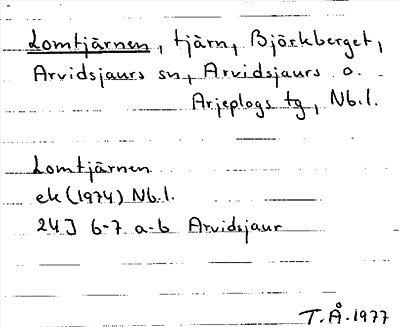 Lomtjärnen, tjärn, Björkberget,
Arvidsjaurs sn, Arvidsjaurs o.
Arjeplogs tg, Nb.l.
Lomtjärnen
ek (1974) Nb.l.
24J 6-7 a-b Arvidsjaur
T.Å.1977